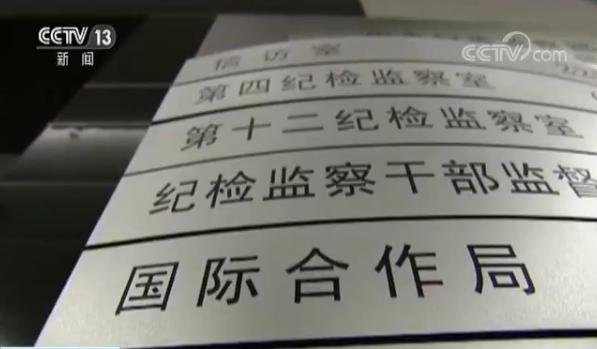 CCTV 13
新闻
CCTV.com
信访室
第四纪检监察室
第十二纪检监察室
纪检监察干部监督
国际合作局